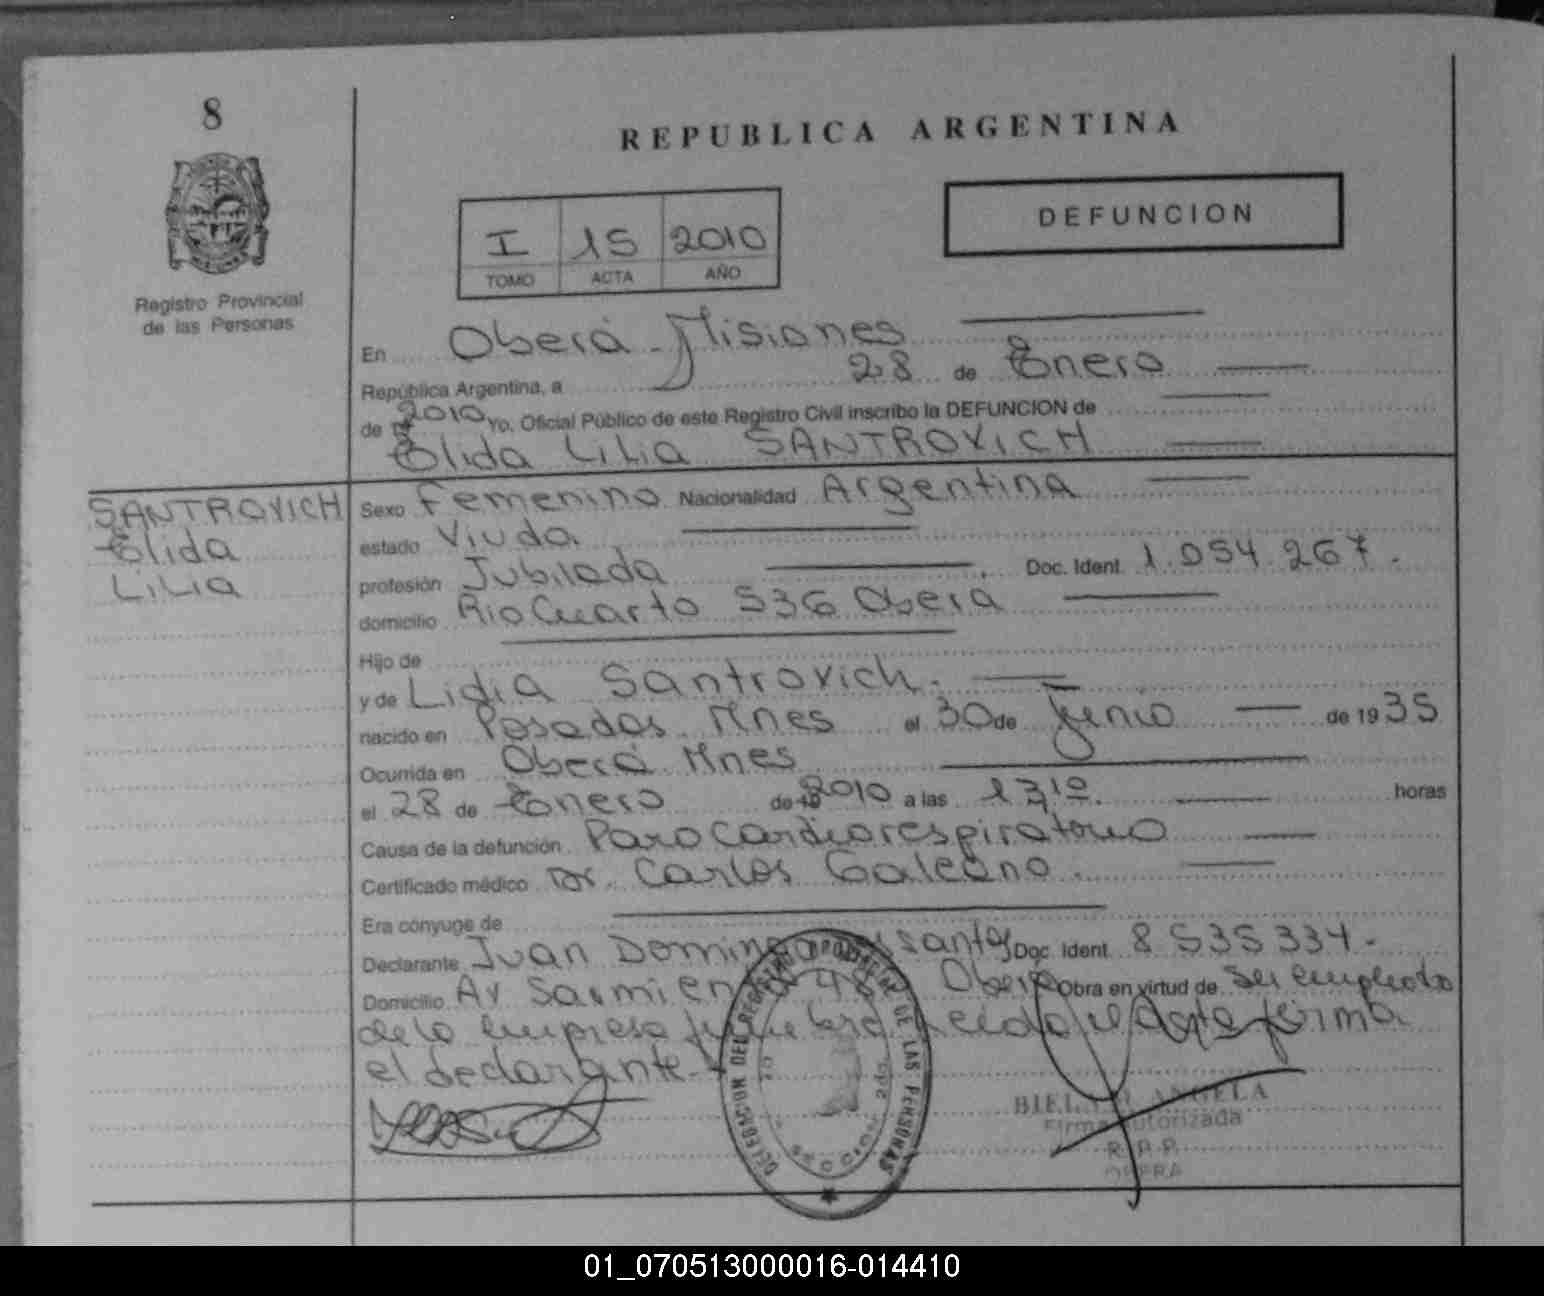 8
REPUBLICA ARGENTINA
DEFUNCION
I 15 2010
TOMO ACTA AÑO
Registro Provincial
de las Personas
En Oberá - Misiones
República Argentina, a 28 de Enero
de 19 2010 Yo, Oficial Público de este Registro Civil inscribo la DEFUNCION de
Elida Lilia SANTROVICH
SANTROVICH
Elida
Lilia
Sexo Femenino Nacionalidad Argentina
estado Viuda
profesión Jubilada Doc. Ident. 1.054.267.
domicilio Rio Cuarto 536 Oberá
Hijo de
y de Lidia Santrovich.
nacido en Posadas Mnes el 30 de Junio de 1935
Ocurrida en Oberá Mnes
el 28 de Enero de 19 2010 a las 13,10 horas
Causa de la defunción Paro Cardiorespiratorio
Certificado médico Dr. Carlos Galeano.
Era cónyuge de
Declarante Juan Domingo Doc. Ident. 8 535 334.
Domicilio Av Sarmiento Oberá Obra en virtud de ser empleado
de la empresa firma
el declarante.
DELEGACION DEL REGISTRO PROVINCIAL DE LAS PERSONAS
ANGELA
Firma Autorizada
R.P.P.
OBERA
01_070513000016-014410